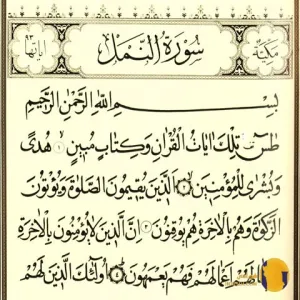 مكية
سورة النمل
اياتها ٩٣
بسم الله الرحمن الرحيم
طس تلك ايات القران وكتاب مبين ١ هدى
وبشرى للمؤمنين ٢ الذين يقيمون الصلوة ويؤتون
الزكوة وهم بالاخرة هم يوقنون ٣ ان الذين لا يؤمنون بالاخرة
لهم اعمالهم فهم يعمهون ٤ اولئك الذين لهم